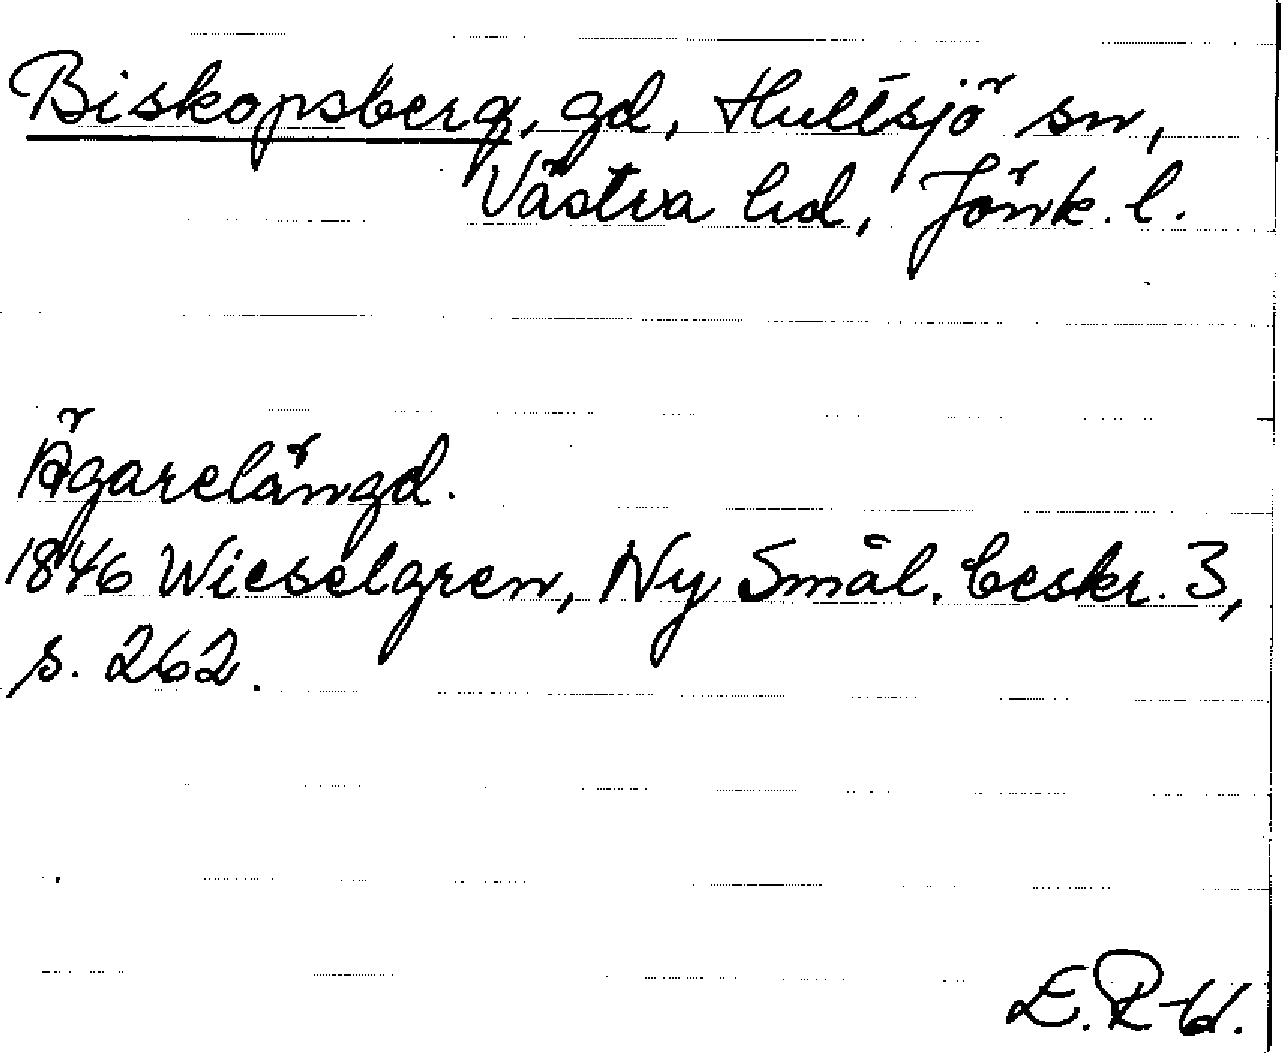 Biskopsberg, gd, Hultsjö sn,
Västra hd, Jönk. l.
Ägarelängd.
1846 Wieselgren, Ny Smål. beskr. 3,
s. 262.
E. R-H.